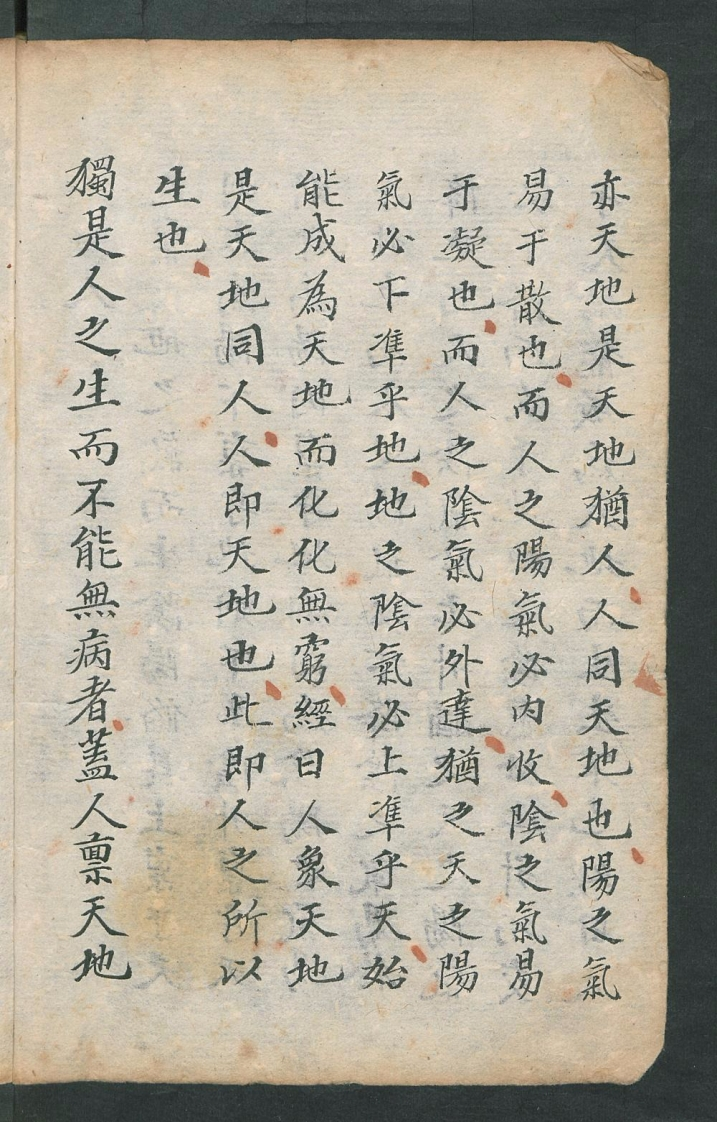 亦天地是天地猶人人同天地也陽之氣
易于散也而人之陽氣必内收陰之氣易
于凝也而人之陰氣必外達猶之天之陽
氣必下凖乎地地之陰氣必上凖乎天始
能成為天地而化化無窮經曰人象天地
是天地同人人即天地也此即人之所以
生也
獨是人之生而不能無病者葢人禀天地